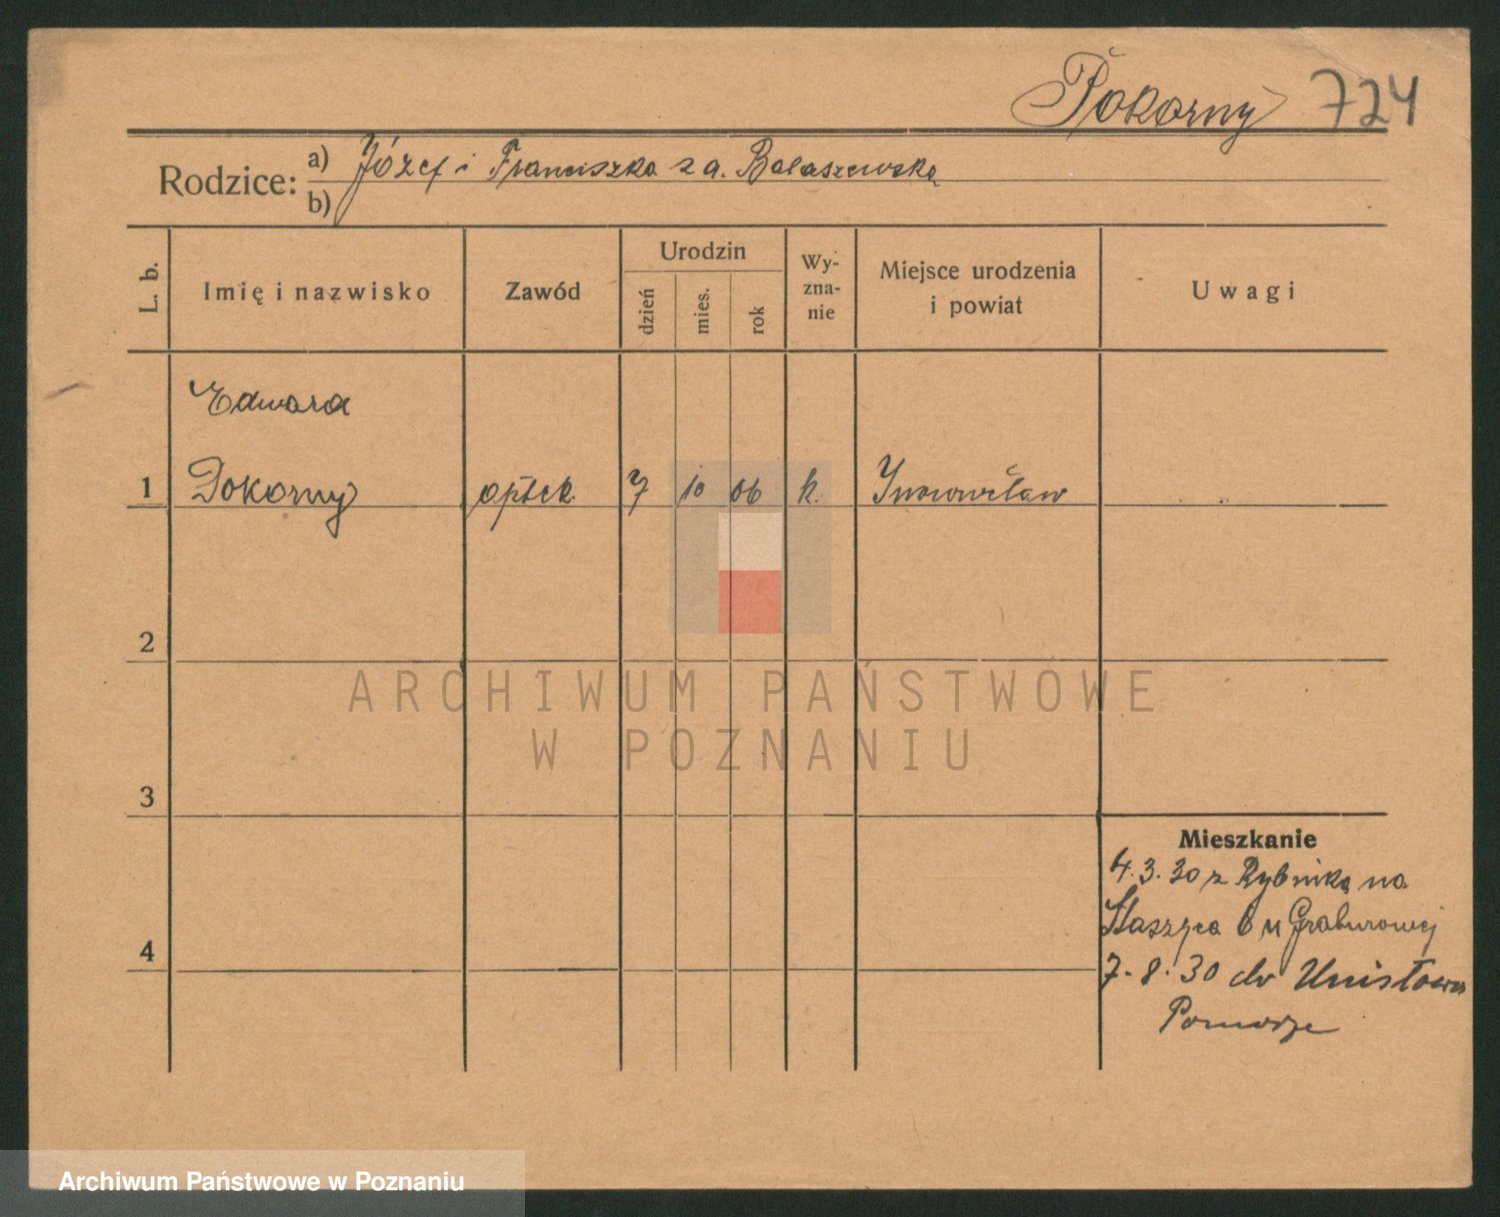 Pokorny 724
Rodzice: a) Józef i Franciszka z d. Balaszewska
b)
L. b. Imię i nazwisko Zawód Urodzin dzień mies. rok Wy-zna-nie Miejsce urodzenia i powiat Uwagi
Edward
1 Pokorny aptek. 7 10 06 k. Inowrocław
2
ARCHIWUM PAŃSTWOWE
W POZNANIU
3
Mieszkanie
4.3.30 z Rybnika na
Staszyca 6 u Graburowej
4
7.8.30 do Unisława
Pomorze
Archiwum Państwowe w Poznaniu